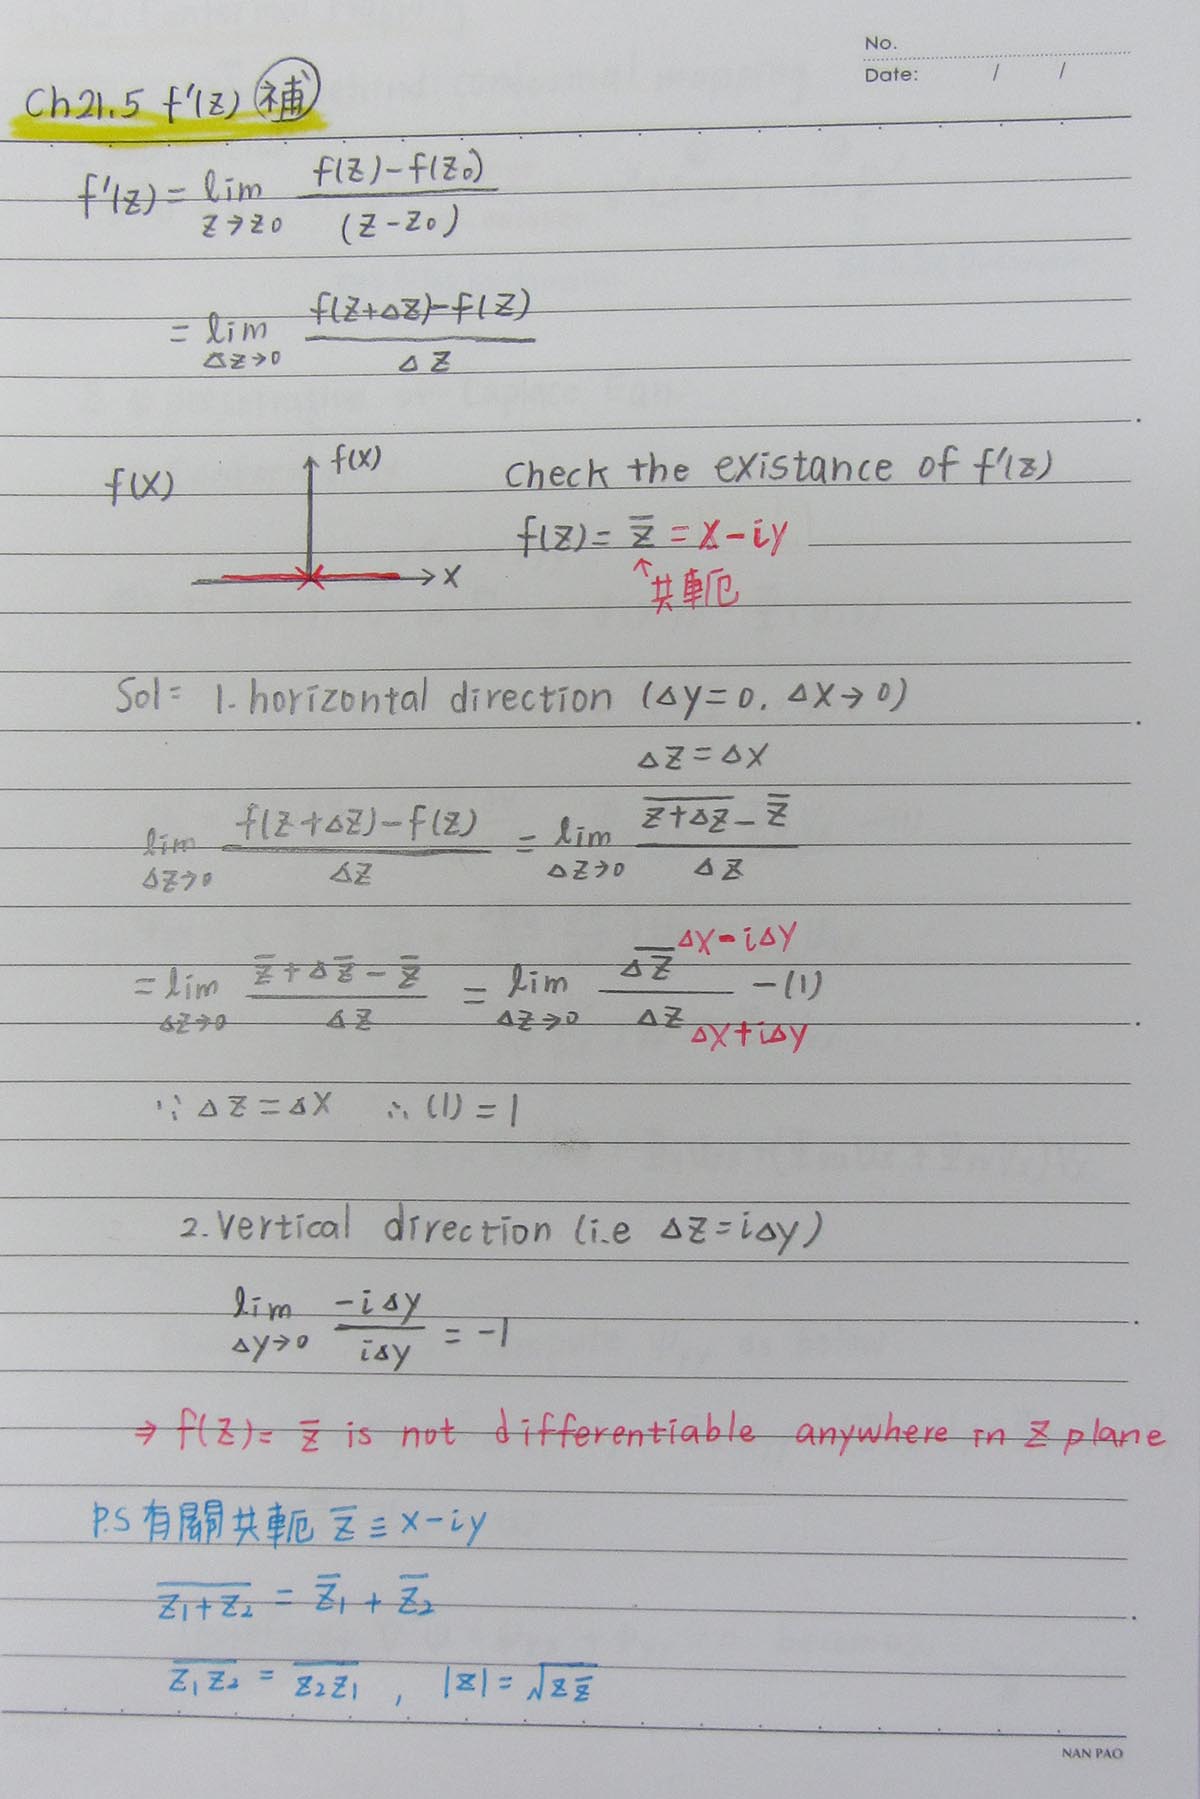 No.
Date: / /
Ch21.5 f'(z) 補
f'(z) = lim z→z0 f(z)-f(z0) / (z-z0)
= lim Δz→0 f(z+Δz)-f(z) / Δz
f(x) f(x) x
Check the existance of f'(z)
f(z) = z̅ = x-iy
↑共軛
Sol= 1. horizontal direction (Δy=0, Δx→0)
Δz=Δx
lim Δz→0 f(z+Δz)-f(z) / Δz = lim Δz→0 \overline{z+Δz} - z̅ / Δz
= lim Δz→0 z̅+Δz̅-z̅ / Δz = lim Δz→0 \overline{Δz} Δx-iΔy / Δz Δx+iΔy -(1)
∵ Δz=Δx ∴ (1)=1
2. Vertical direction (i.e Δz=iΔy)
lim Δy→0 -iΔy / iΔy = -1
⇒ f(z)= z̅ is not differentiable anywhere in z plane
P.S 有關共軛 z̅ ≡ x-iy
\overline{z₁+z₂} = z̅₁ + z̅₂
\overline{z₁z₂} = \overline{z₂z₁} , |z|=√zz̅
NAN PAO